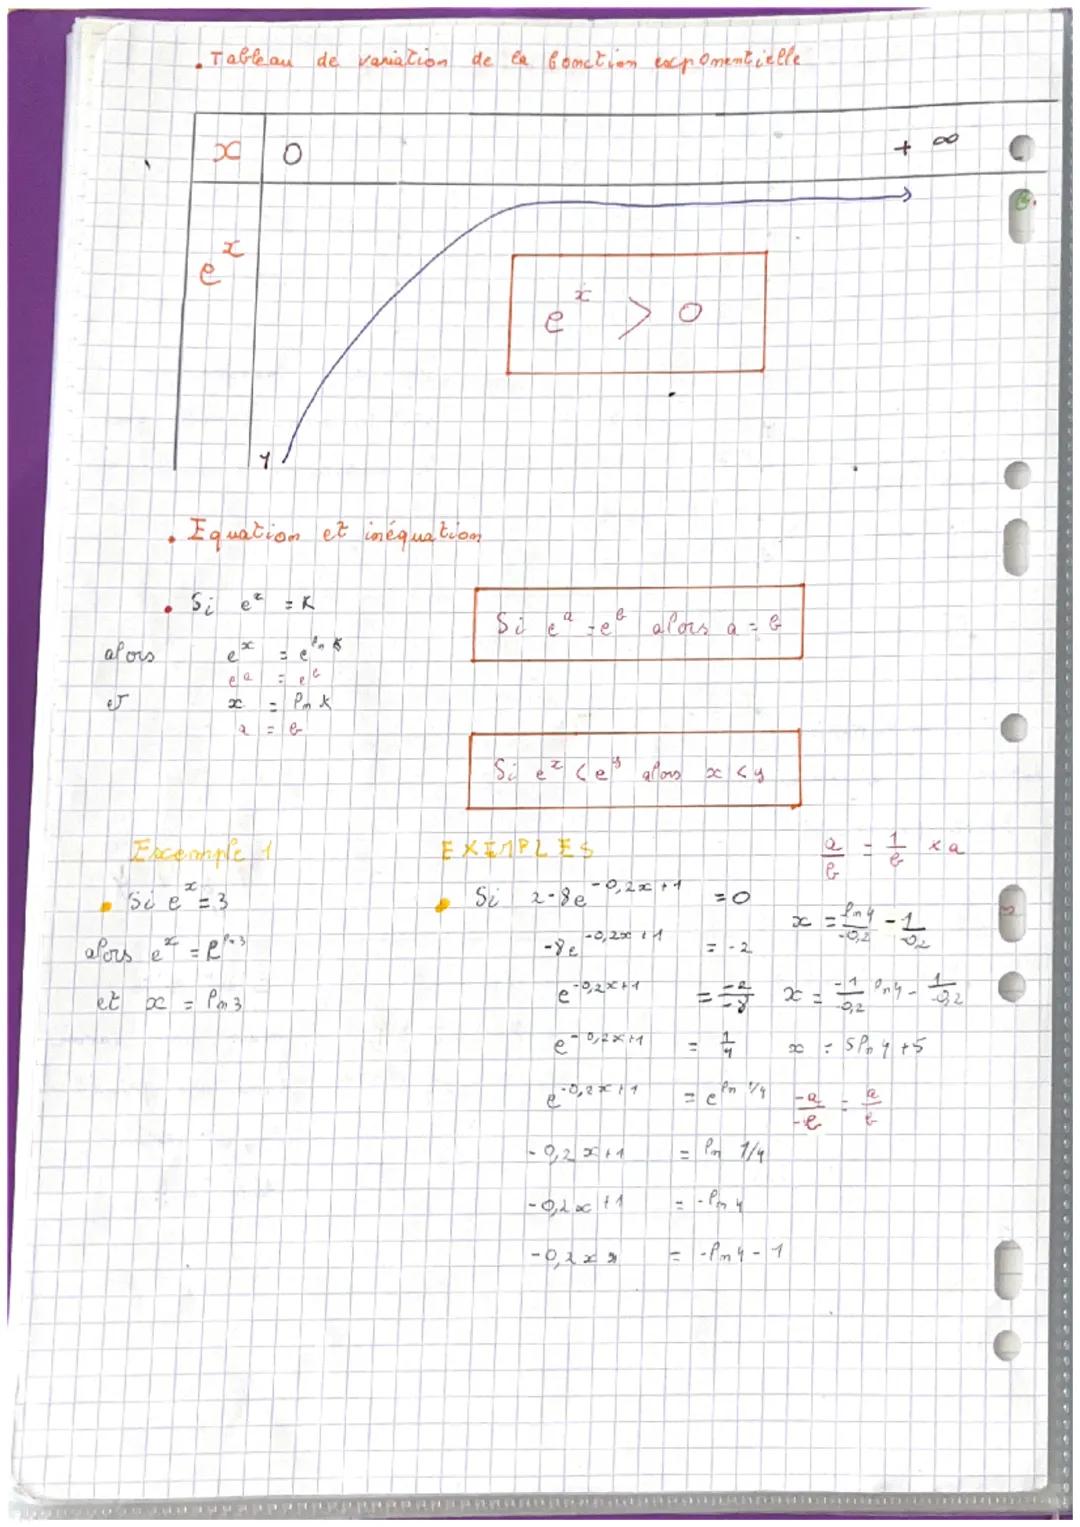 . Tableau de variation de la fonction exponentielle
x 0 + ∞
e^x
e^x > 0
1
. Equation et inéquation
• Si e^x = K
alors e^x = e^ln K
e^a = e^b
et x = ln K
a = b
Si e^a = e^b alors a = b
Si e^x < e^y alors x < y
Exemple 1
• Si e^x = 3
alors e^x = e^ln 3
et x = ln 3
EXEMPLES
• Si 2-8e^-0,2x+1 = 0
-8e^-0,2x+1 = -2
e^-0,2x+1 = -2/-8
e^-0,2x+1 = 1/4
e^-0,2x+1 = e^ln 1/4
-0,2x+1 = ln 1/4
-0,2x+1 = -ln 4
-0,2x = -ln 4 - 1
a/b = 1/b × a
x = ln 4/-0,2 - 1/-0,2
x = -1/-0,2 ln 4 - 1/-0,2
x = 5ln 4 +5
-a/-b = a/b